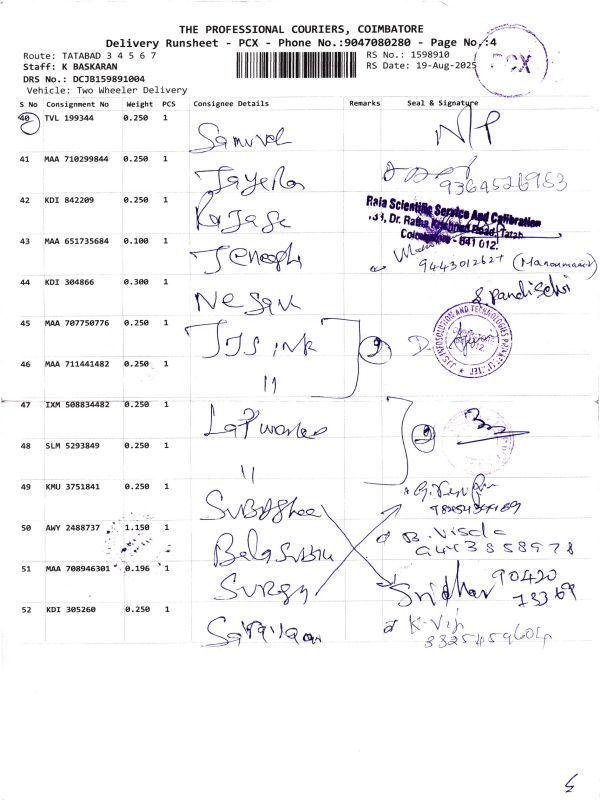 THE PROFESSIONAL COURIERS, COIMBATORE
Delivery Runsheet - PCX - Phone No.:9047080280 - Page No.:4
Route: TATABAD 3 4 5 6 7
RS No.: 1598910
Staff: K BASKARAN
RS Date: 19-Aug-2025
PCX
DRS No.: DCJB159891004
Vehicle: Two Wheeler Delivery
S No Consignment No Weight PCS Consignee Details Remarks Seal & Signature
40 TVL 199344 0.250 1 N/P
41 MAA 710299844 0.250 1
42 KDI 842209 0.250 1
Raja Scientific Service And Calibration
Dr. Ratna Road, Tatab
641 012.
43 MAA 651735684 0.100 1
(Manonmani)
44 KDI 304866 0.300 1 Nesan
S. Pandiselvi
45 MAA 707750776 0.250 1 JJS ink
JJS INFOSOLUTION AND TECHNOLOGIES
46 MAA 711441482 0.250 1 11
47 IXM 508834482 0.250 1
48 SLM 5293849 0.250 1 11
49 KMU 3751841 0.250 1
50 AWY 2488737 1.150 1
9443858978
51 MAA 708946301 0.196 1 Sridhar 90420
73369
52 KDI 305260 0.250 1